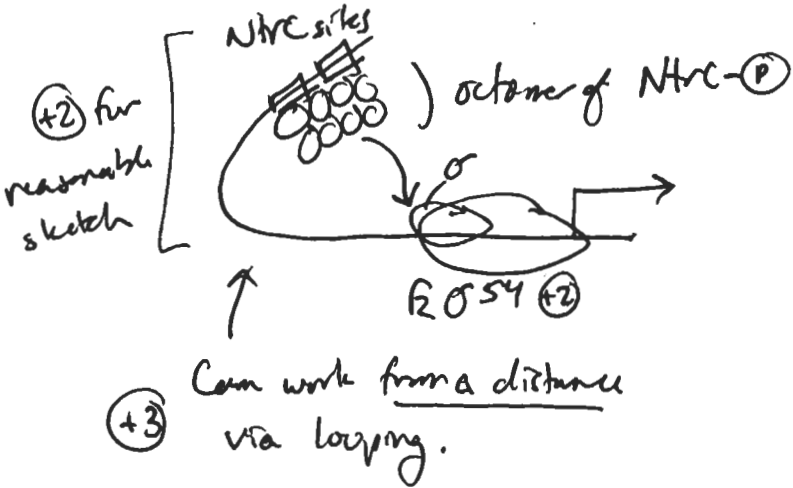 NtrC sites
+2 for
reasonable
sketch
octamer of NtrC-P
σ
Eσ54 +2
Can work from a distance
+3
via looping.